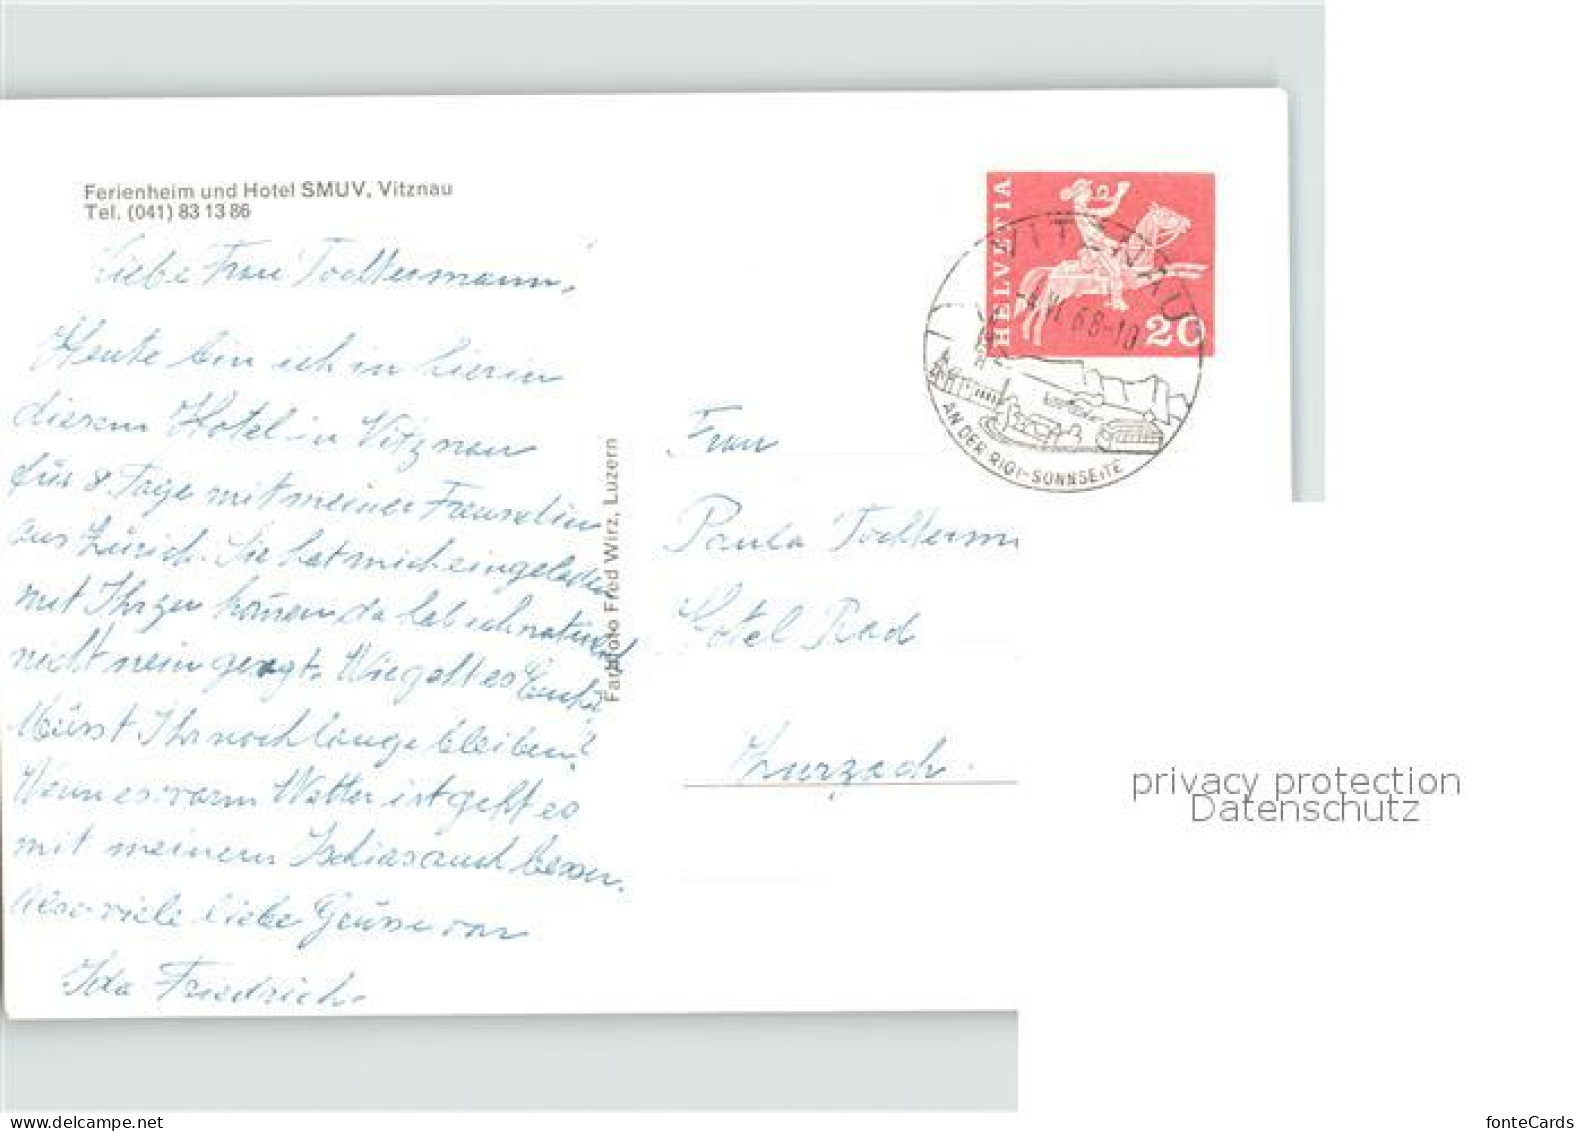 Ferienheim und Hotel SMUV, Vitznau
Tel. (041) 83 13 86
Liebe Frau Tochtermann,
Heute bin ich in hierin
diesem Hotel in Vitznau
für 8 Tage mit meiner Freundin
aus Zürich. Sie hat mich eingeladen
mit Ihr zu kommen da hab ich natürl
nicht nein gesagt. Wie geht es Euch?
Müsst Ihr noch lange bleiben?
Wenn es warm Wetter ist geht es
mit meinem Ischias auch besser.
Also viele liebe Grüsse von
Ida Friedrich.
Farbfoto Fred Wirz, Luzern
HELVETIA
20
VITZNAU
-4.VI.68-10
AN DER RIGI-SONNSEITE
Frau
Paula Tochterm
Hotel Rad
Zurzach.
privacy protection
Datenschutz
fonteCards